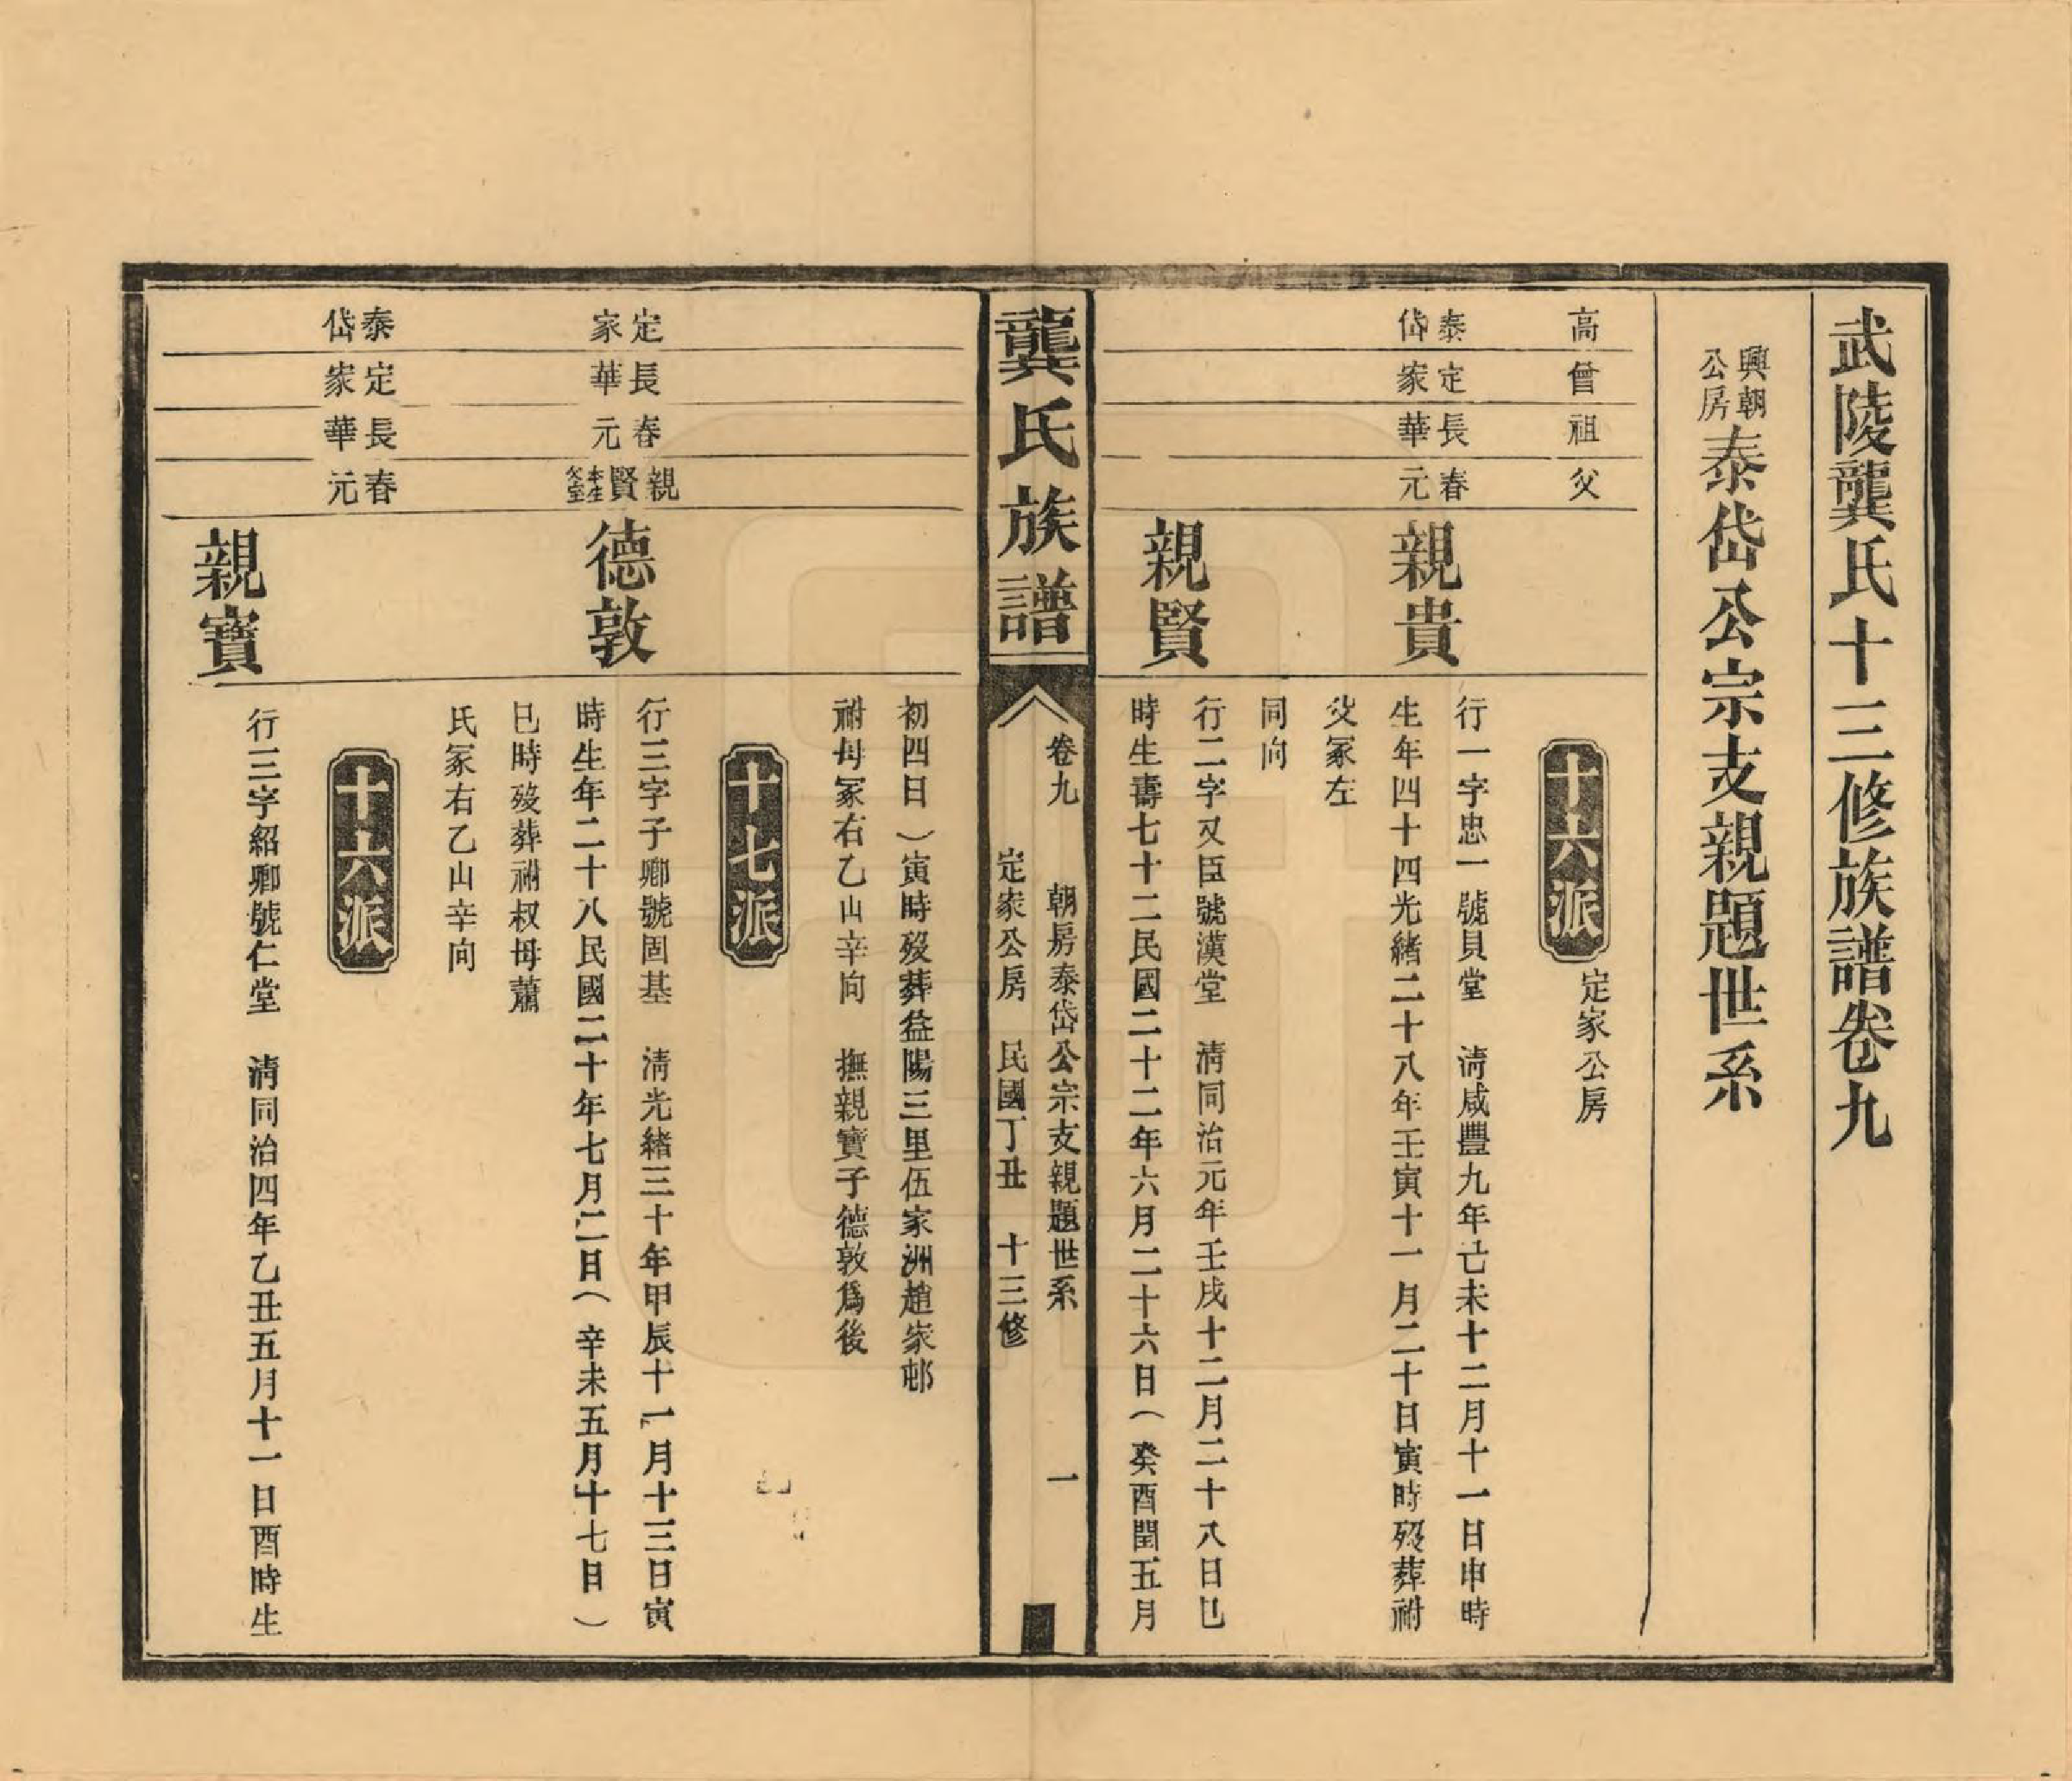 武陵龔氏十三修族譜卷九
興朝
公房
泰岱公宗支親題世系
高
曾
祖
父
十六派
定家公房
泰岱
定家
長華
春元
親貴
行一字忠一號貝堂　清咸豐九年己未十二月十一日申時
生年四十四光緒二十八年壬寅十一月二十日寅時歿葬祔
父冢左
同向
親賢
行二字又臣號漢堂　清同治元年壬戌十二月二十八日巳
時生壽七十二民國二十二年六月二十六日（癸酉閏五月
龔氏族譜
卷九　朝房泰岱公宗支親題世系　一
定家公房　民國丁丑　十三修
初四日）寅時歿葬益陽三里伍家洲趙家邨
祔母冢右乙山辛向　撫親寶子德敦爲後
十七派
定家
長華
春元
親賢
本生
父室
德敦
行三字子卿號固基　清光緒三十年甲辰十一月十三日寅
時生年二十八民國二十年七月二日（辛未五月十七日）
巳時歿葬祔叔母蕭
氏冢右乙山辛向
十六派
泰岱
定家
長華
春元
親寶
行三字紹卿號仁堂　清同治四年乙丑五月十一日酉時生